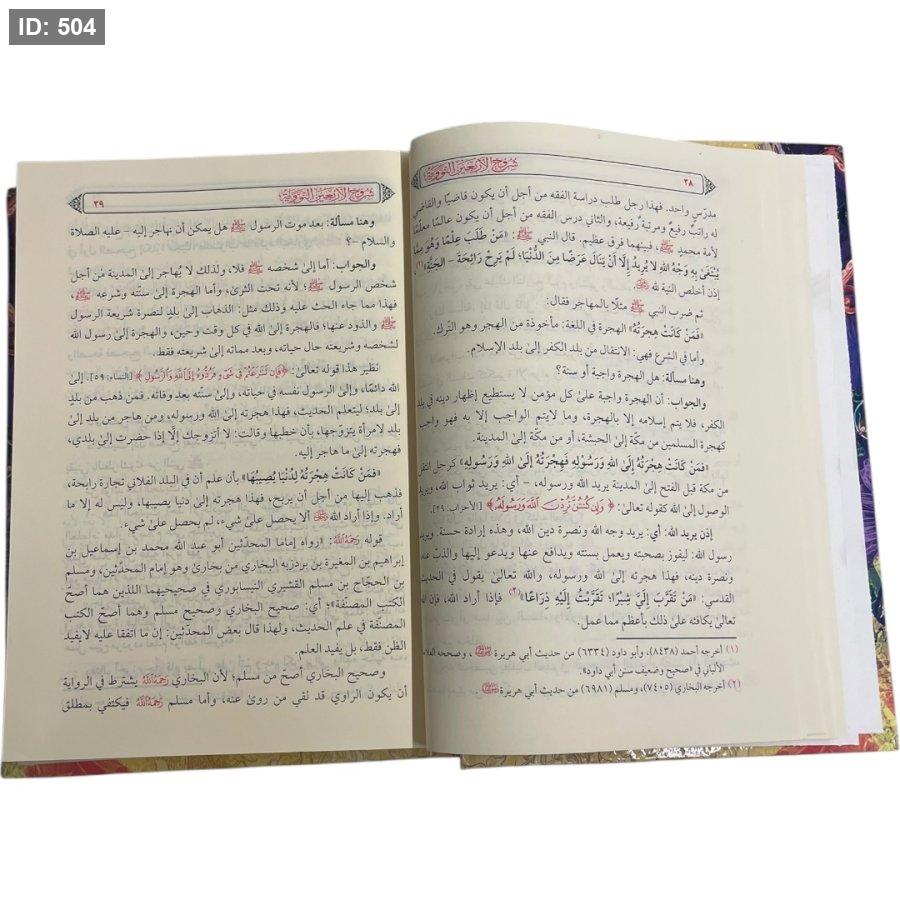 ID: 504
٢٨
شروح الأربعين النووية
مدرّس واحد. فهذا رجل طلب دراسة الفقه من أجل أن يكون قاضيًا والقاضي
له راتبٌ رفيع ومرتبةٌ رفيعة، والثاني درس الفقه من أجل أن يكون عالمًا معلّمًا
لأمة محمدٍ ﷺ، فبينهما فرق عظيم. قال النبي ﷺ: «مَنْ طَلَبَ عِلْمًا وَهُوَ مِمَّا
يُبْتَغَىٰ بِهِ وَجْهُ اللهِ لا يُرِيدُ إِلَّا أَنْ يَنَالَ عَرَضًا مِنَ الدُّنْيَا؛ لَمْ يَرِحْ رَائِحَةَ – الجَنَّةِ»(١)
إذن أخلص النية لله
ثم ضرب النبي ﷺ مثلًا بالمهاجر فقال:
«فَمَنْ كَانَتْ هِجْرَتُهُ» الهجرة في اللغة: مأخوذة من الهجر وهو التّرك.
وأما في الشرع فهي: الانتقال من بلد الكفر إلى بلد الإسلام.
وهنا مسألة: هل الهجرة واجبة أو سنة؟
والجواب: أن الهجرة واجبة علىٰ كل مؤمن لا يستطيع إظهار دينه في بلد
الكفر، فلا يتم إسلامه إلا بالهجرة، وما لايتم الواجب إلا به فهو واجب
كهجرة المسلمين من مكّة إلىٰ الحبشة، أو من مكّة إلىٰ المدينة.
«فَمَنْ كَانَتْ هِجْرَتُهُ إِلَىٰ اللهِ وَرَسُولِهِ فَهِجْرَتُهُ إِلَىٰ اللهِ وَرَسُولِهِ» كرجل انتقل
من مكة قبل الفتح إلى المدينة يريد الله ورسوله، – أي: يريد ثواب الله، ويريد
الوصول إلىٰ الله كقوله تعالىٰ: ﴿وَإِن كُنتُنَّ تُرِدْنَ ٱللَّهَ وَرَسُولَهُۥ﴾ [الأحزاب: ٢٩].
إذن يريد الله: أي: يريد وجه الله ونصرة دين الله، وهذه إرادة حسنة. ويريد
رسول الله: ليفوز بصحبته ويعمل بسنته ويدافع عنها ويدعو إليها والذبّ عنه
ونصرة دينه، فهذا هجرته إلىٰ الله ورسوله، والله تعالىٰ يقول في الحديث
القدسي: «مَنْ تَقَرَّبَ إِلَيَّ شِبْرًا؛ تَقَرَّبْتُ إِلَيْهِ ذِرَاعًا»(٢) فإذا أراد الله، فإن الله
تعالىٰ يكافئه علىٰ ذلك بأعظم مما عمل.
(١) أخرجه أحمد (٨٤٣٨)، وأبو داود (٦٣٣٤) من حديث أبي هريرة رضي الله عنه، وصححه العلامة
الألباني في «صحيح وضعيف سنن أبي داود».
(٢) أخرجه البخاري (٧٤٠٥)، ومسلم (٦٩٨١) من حديث أبي هريرة رضي الله عنه
شروح الأربعين النووية
٢٩
وهنا مسألة: بعد موت الرسول ﷺ هل يمكن أن نهاجر إليه – عليه الصلاة
والسلام –؟
والجواب: أما إلىٰ شخصه ﷺ فلا، ولذلك لا يُهاجر إلى المدينة من أجل
شخص الرسول ﷺ؛ لأنه تحت الثرىٰ؛ وأما الهجرة إلىٰ سنّته وشرعه ﷺ،
فهذا مما جاء الحث عليه وذلك مثل: الذهاب إلىٰ بلدٍ لنصرة شريعة الرسول
ﷺ والذود عنها؛ فالهجرة إلىٰ الله في كل وقت وحين، والهجرة إلى رسول الله
لشخصه وشريعته حال حياته، وبعد مماته إلى شريعته فقط.
نظير هذا قوله تعالىٰ: ﴿فَإِن تَنَٰزَعْتُمْ فِى شَىْءٍ فَرُدُّوهُ إِلَى ٱللَّهِ وَٱلرَّسُولِ﴾ [النساء: ٥٩]. إلىٰ
الله دائمًا، وإلىٰ الرسول نفسه في حياته، وإلىٰ سنّته بعد وفاته. فمن ذهب من بلدٍ
إلىٰ بلد؛ ليتعلم الحديث، فهذا هجرته إلىٰ الله ورسوله، ومن هاجر من بلد إلىٰ
بلد لامرأة يتزوّجها، بأن خطبها وقالت: لا أتزوجك إلَّا إذا حضرت إلىٰ بلدي،
فهجرته إلىٰ ما هاجر إليه.
«فَمَنْ كَانَتْ هِجْرَتُهُ لِدُنْيَا يُصِيبُهَا» بأن علم أن في البلد الفلاني تجارة رابحة،
فذهب إليها من أجل أن يربح، فهذا هجرته إلىٰ دنيا يصيبها، وليس له إلا ما
أراد. وإذا أراد الله ألا يحصل علىٰ شيء، لم يحصل علىٰ شيء.
قوله رَحِمَهُ اللَّهُ: «رواه إماما المحدّثين أبو عبد الله محمد بن إسماعيل بن
إبراهيم بن المغيرة بن بردزبه البخاري من بخارىٰ وهو إمام المحدّثين، ومسلم
بن الحجّاج بن مسلم القشيري النيسابوري في صحيحيهما اللذين هما أصحّ
الكتب المصنّفة»؛ أي: صحيح البخاري وصحيح مسلم وهما أصحّ الكتب
المصنّفة في علم الحديث، ولهذا قال بعض المحدّثين: إن ما اتفقا عليه لايفيد
الظن فقط، بل يفيد العلم.
وصحيح البخاري أصحّ من مسلم؛ لأن البخاري رَحِمَهُ اللَّهُ يشترط في الرواية
أن يكون الراوي قد لقي من روىٰ عنه، وأما مسلم رَحِمَهُ اللَّهُ فيكتفي بمطلق